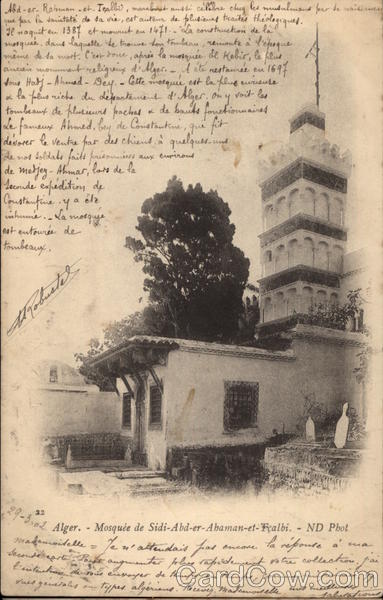 Abd-er-Rahman-et-Tcalbi, marabout aussi célèbre chez les musulmans par sa naissance
que par la sainteté de sa vie, est auteur de plusieurs traités théologiques.
Il naquit en 1387 et mourut en 1471. - La construction de la
mosquée, dans laquelle se trouve son tombeau, remonte à l'époque
même de sa mort. C'est donc, après la mosquée El Kebir, le plus
ancien monument religieux d'Alger. - A été restaurée en 1697
sous Hadj-Ahmed-Bey. - Cette mosquée est la plus curieuse
& la plus riche du département d'Alger. On y voit les
tombeaux de plusieurs pachas & de hauts fonctionnaires
Le fameux Ahmed, bey de Constantine, qui fit
dévorer le ventre par des chiens, à quelques-uns
de nos soldats faits prisonniers aux environs
de Medjez-Ahmar, lors de la
seconde expédition de
Constantine, y a été
inhumé. - La mosquée
est entourée de
tombeaux.
22
Alger. - Mosquée de Sidi-Abd-er-Ahaman-et-Tçalbi. - ND Phot
29-3-02
Mademoiselle = Je n'attendais pas encore la réponse à ma
seconde carte. Pour augmenter plus rapidement votre collection j'ai
l'intention de vous envoyer de
vues générales ou types algériens. Recevez, Mademoiselle, mes
salutations
www.CardCow.com